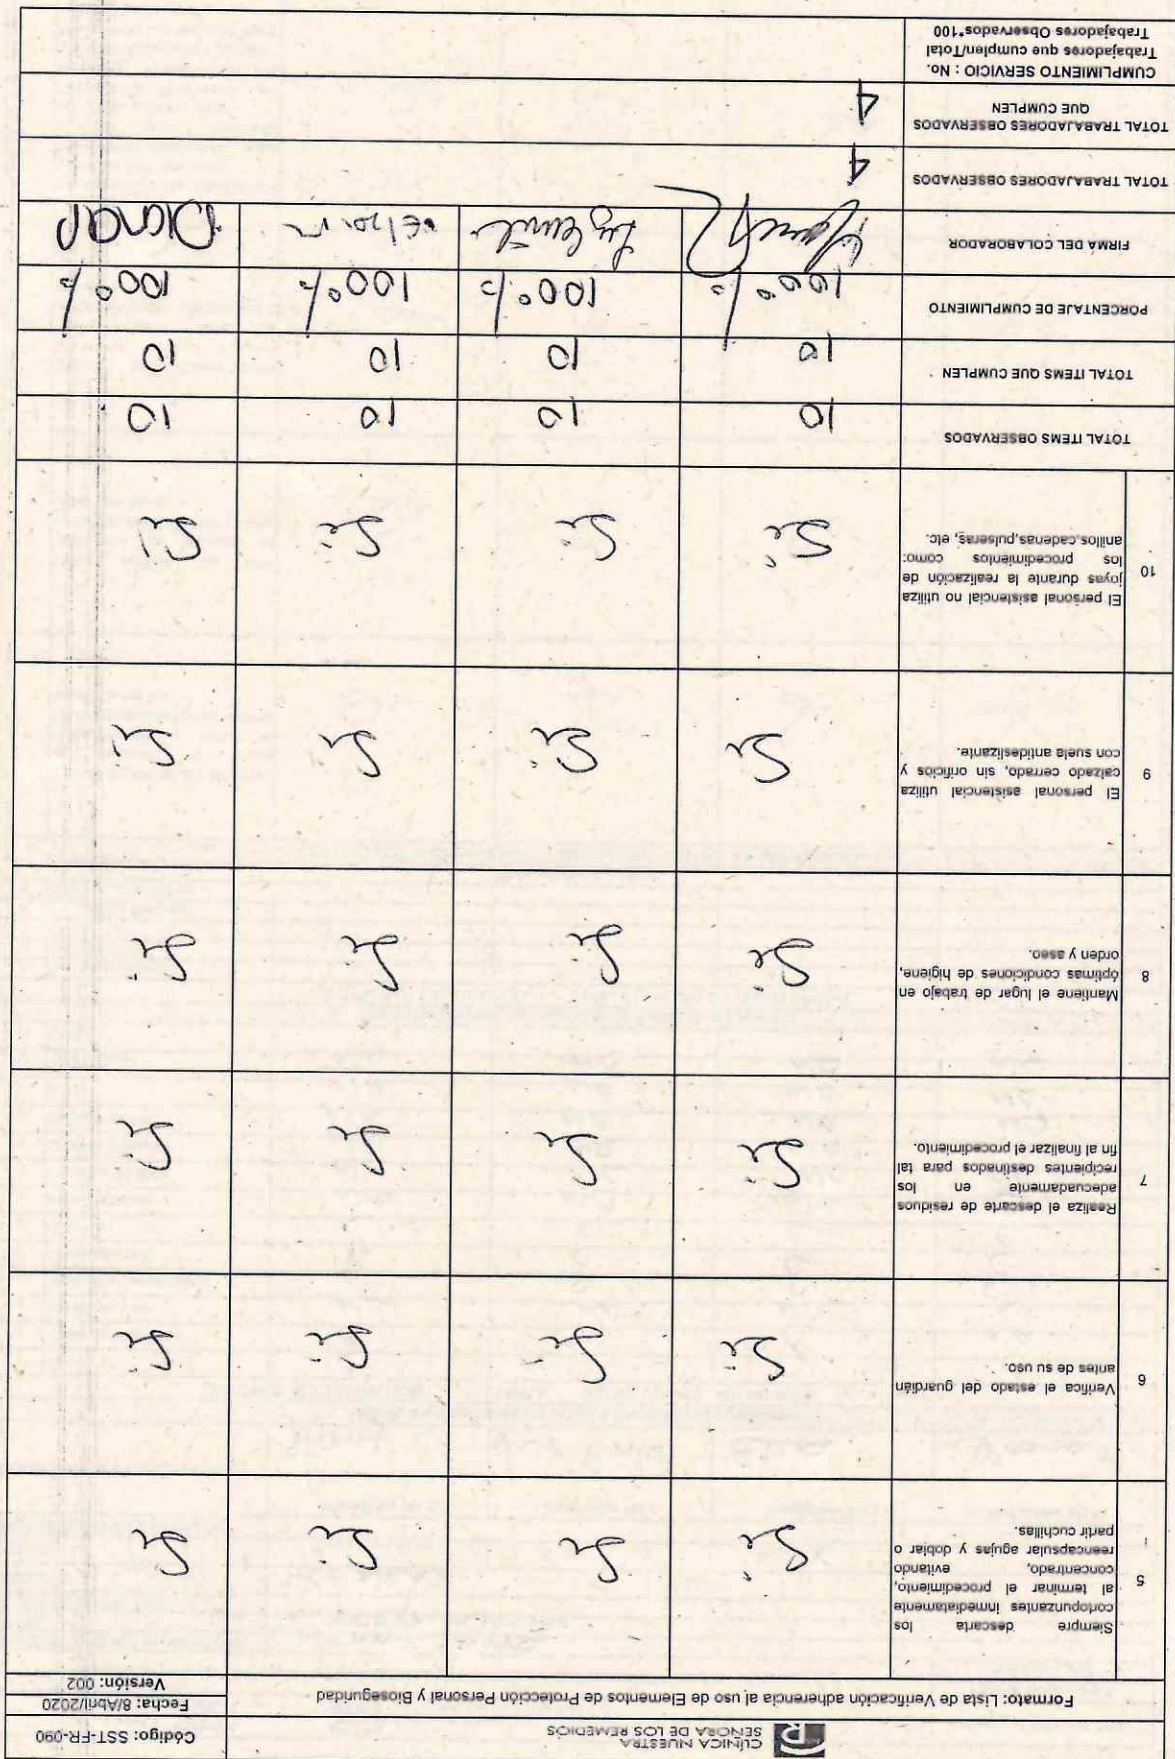 CLÍNICA NUESTRA
SEÑORA DE LOS REMEDIOS
Código: SST-FR-090
Formato: Lista de Verificación adherencia al uso de Elementos de Protección Personal y Bioseguridad
Fecha: 8/Abril/2020
Versión: 002
5
Siempre descarta los
cortopunzantes inmediatamente
al terminar el procedimiento,
concentrado, evitando
reencapsular agujas y doblar o
partir cuchillas.
Si Si Si Si
6
Verifica el estado del guardián
antes de su uso.
Si Si Si Si
7
Realiza el descarte de residuos
adecuadamente en los
recipientes destinados para tal
fin al finalizar el procedimiento.
Si Si Si Si
8
Mantiene el lugar de trabajo en
óptimas condiciones de higiene,
orden y aseo.
Si Si Si Si
9
El personal asistencial utiliza
calzado cerrado, sin orificios y
con suela antideslizante.
Si Si Si Si
10
El personal asistencial no utiliza
joyas durante la realización de
los procedimientos como:
anillos,cadenas,pulseras, etc.
Si Si Si Si
TOTAL ITEMS OBSERVADOS
10 10 10 10
TOTAL ITEMS QUE CUMPLEN
10 10 10 10
PORCENTAJE DE CUMPLIMIENTO
100% 100% 100% 100%
FIRMA DEL COLABORADOR
TOTAL TRABAJADORES OBSERVADOS
4
TOTAL TRABAJADORES OBSERVADOS
QUE CUMPLEN
4
CUMPLIMIENTO SERVICIO : No.
Trabajadores que cumplen/Total
Trabajadores Observados*100